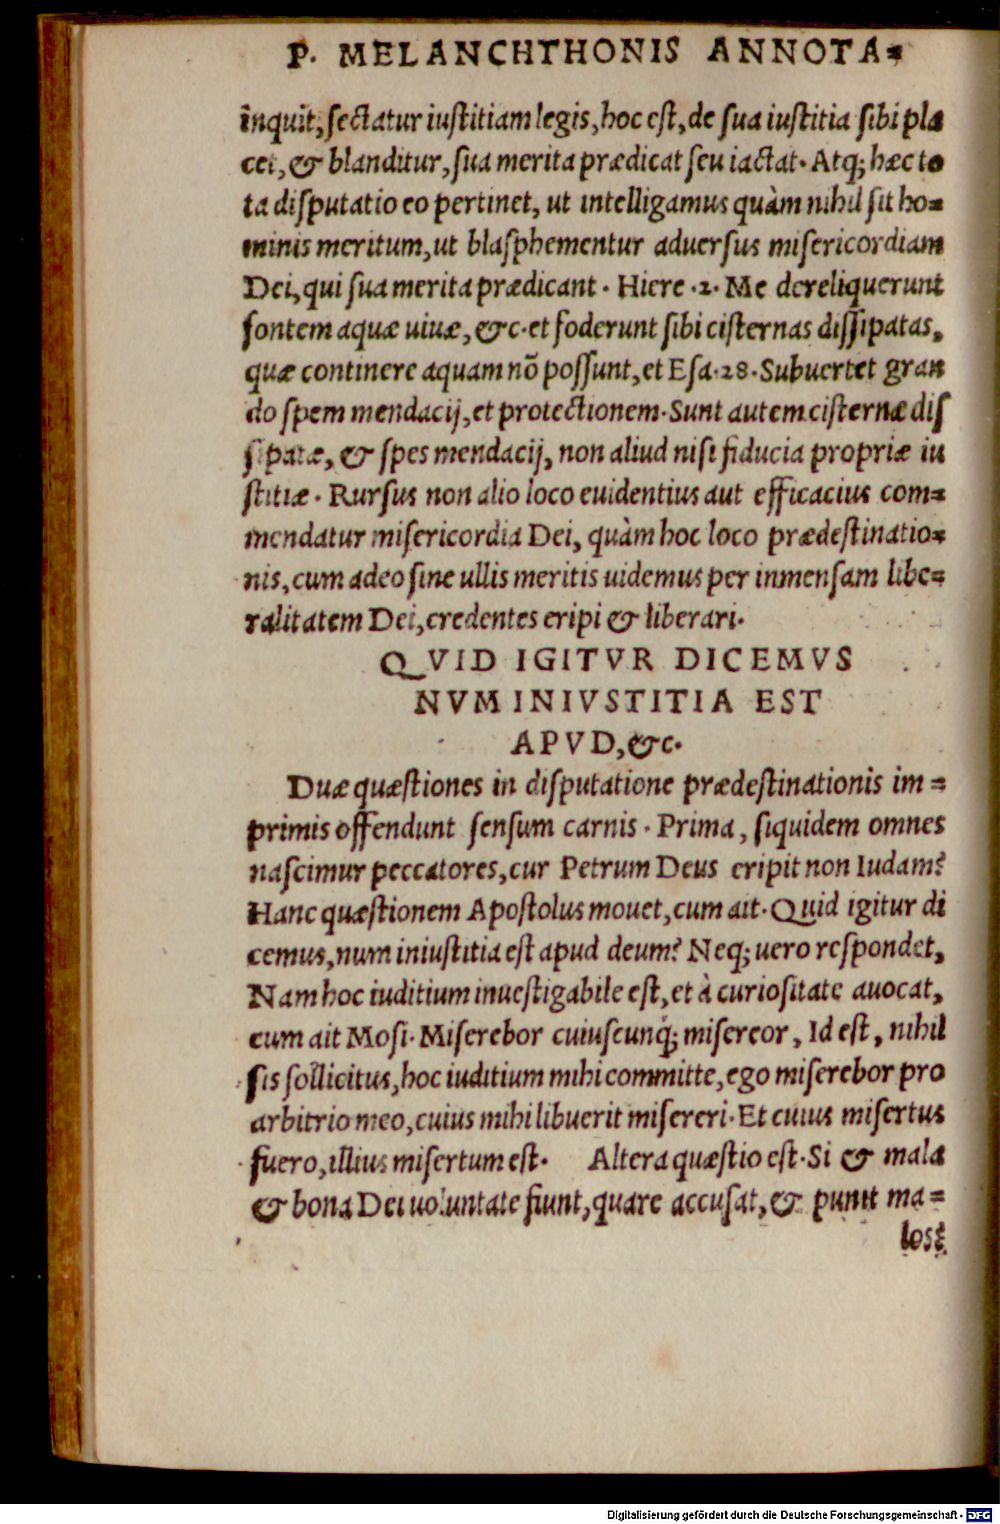 P. MELANCHTHONIS ANNOTA⸗
inquit, ſectatur iuſtitiam legis, hoc eſt, de ſua iuſtitia ſibi pla
cet, & blanditur, ſua merita prædicat ſeu iactat. Atq; hæc to
ta diſputatio eo pertinet, ut intelligamus quàm nihil ſit ho⸗
minis meritum, ut blaſphementur aduerſus miſericordiam
Dei, qui ſua merita prædicant. Hiere .2. Me dereliquerunt
fontem aquæ uiuæ, &c. et foderunt ſibi ciſternas diſſipatas,
quæ continere aquam nõ poſſunt, et Eſa. 28. Subuertet gran
do ſpem mendacij, et protectionem. Sunt autem ciſternæ diſ
ſipatæ, & ſpes mendacij, non aliud niſi fiducia propriæ iu
ſtitiæ. Rurſus non alio loco euidentius aut efficacius com⸗
mendatur miſericordia Dei, quàm hoc loco prædeſtinatio⸗
nis, cum adeo ſine ullis meritis uidemus per inmenſam libe⸗
ralitatem Dei, credentes eripi & liberari.
QVID IGITVR DICEMVS
NVM INIVSTITIA EST
APVD, &c.
Duæ quæſtiones in diſputatione prædeſtinationis im⸗
primis offendunt ſenſum carnis. Prima, ſiquidem omnes
naſcimur peccatores, cur Petrum Deus eripit non Iudam?
Hanc quæſtionem Apoſtolus mouet, cum ait. Quid igitur di
cemus, num iniuſtitia eſt apud deum? Neq; uero reſpondet,
Nam hoc iuditium inueſtigabile eſt, et à curioſitate auocat,
cum ait Moſi. Miſerebor cuiuſcunq; miſereor, Id eſt, nihil
ſis ſollicitus, hoc iuditium mihi committe, ego miſerebor pro
arbitrio meo, cuius mihi libuerit miſereri. Et cuius miſertus
fuero, illius miſertum eſt. Altera quæſtio eſt. Si & mala
& bona Dei uoluntate fiunt, quare accuſat, & punit ma⸗
los?
Digitalisierung gefördert durch die Deutsche Forschungsgemeinschaft - DFG